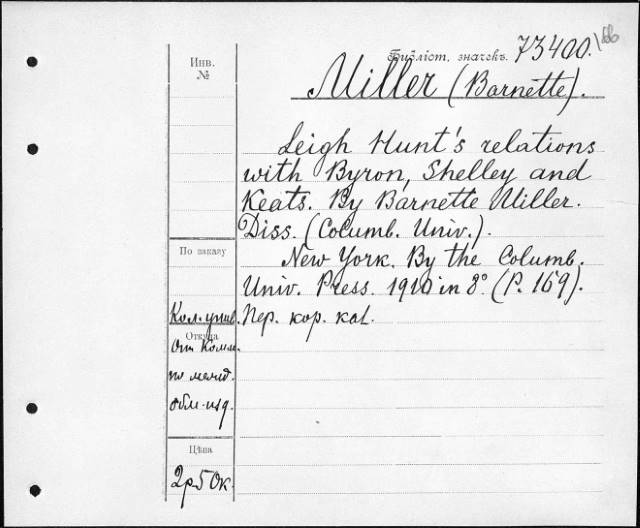 Библіот. значекъ. 73400. 166
Инв.
№
Miller (Barnette).
Leigh Hunt's relations
with Byron, Shelley and
Keats. By Barnette Miller.
Diss. (Columb. Univ.).
По заказу
New York. By the Columb.
Univ. Press. 1910 in 8° (P. 169).
Кол. унив. Пер. кор. kal.
Откуда
От Комм.
по межд.
обм. изд.
Цѣна
2р. 50к.